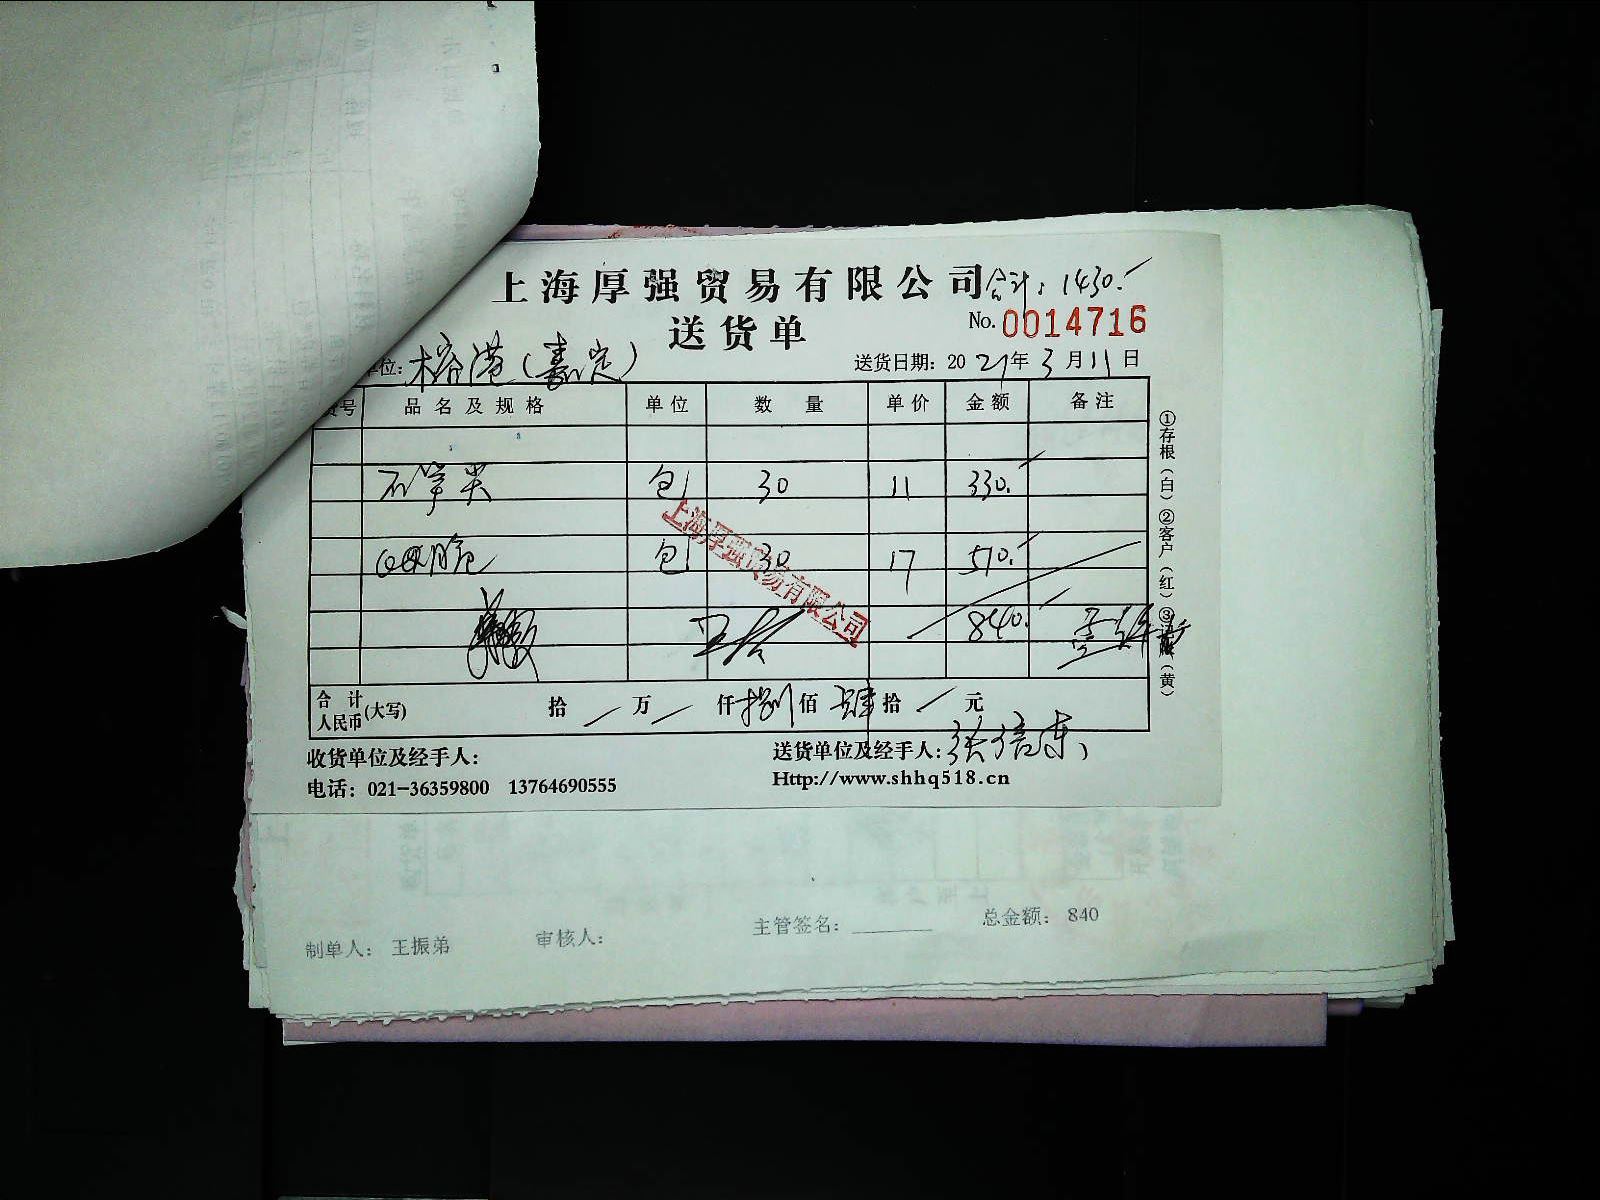 上海厚强贸易有限公司 合计：1430.
送货单 No. 0014716
位：榕港（嘉定） 送货日期：2021年3月11日
号 品名及规格 单位 数量 单价 金额 备注
石笋尖 包 30 11 330.
包 30 17 510.
840.
上海厚强贸易有限公司
合计人民币(大写) 拾 / 万 / 仟 捌 佰 肆 拾 / 元
收货单位及经手人： 送货单位及经手人：
电话：021-36359800 13764690555 Http://www.shhq518.cn
①存根（白）②客户（红）③（黄）
制单人： 王振弟 审核人： 主管签名：________ 总金额： 840